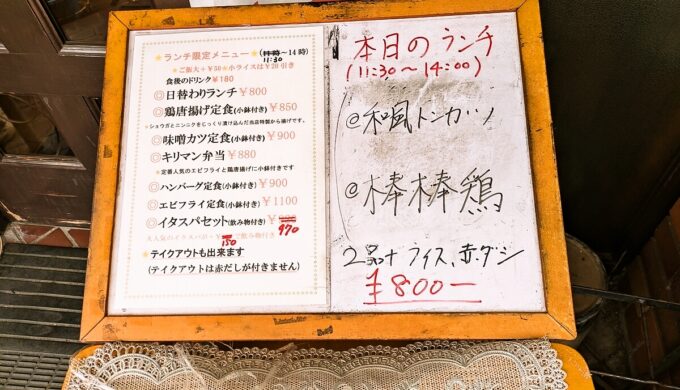 ★ランチ限定メニュー★(11:30～14時)
★ご飯大+¥50★小ライスは¥20引き
食後のドリンク¥180
◎日替わりランチ¥800
◎鶏唐揚げ定食(小鉢付き)¥850
★ショウガとニンニクをじっくり漬け込んだ当店特製から揚げです。
◎味噌カツ定食(小鉢付き)¥900
◎キリマン弁当¥880
★定番人気のエビフライと鶏唐揚げに小鉢付きです
◎ハンバーグ定食(小鉢付き)¥900
◎エビフライ定食(小鉢付き)¥1100
◎イタスパセット(飲み物付き)¥
970
大人気のイタスパが+ 150 で飲み物付き
★テイクアウトも出来ます
(テイクアウトは赤だしが付きません)
本日のランチ
(11:30～14:00)
@和風トンカツ
@棒棒鶏
2品+ライス、赤ダシ
¥800-